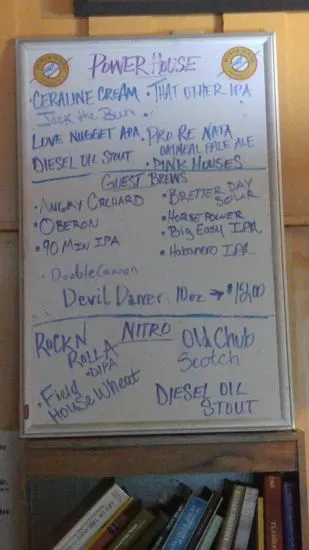 POWER HOUSE
• CERALINE CREAM
Jack the Bum
LOVE NUGGET APA
DIESEL OIL STOUT
• THAT OTHER IPA
PRO RE NATA
OATMEAL PALE ALE
• PINK HOUSES
GUEST BREWS
• ANGRY ORCHARD
• OBERON
• 90 MIN IPA
• Double Cannon
• BRETTER DAY
SOUR
• HORSEPOWER
• Big Easy IPA
• Habanero IPA
Devil Dancer 10oz → $12.00
NITRO
ROCKN
ROLLA
• DIPA
• Field
House Wheat
Old Chub
Scotch
DIESEL OIL
STOUT